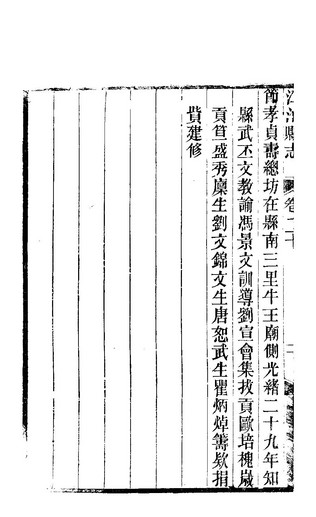 節孝貞壽總坊在縣南三里牛王廟側光緒二十九年知
縣武丕文教諭馮景文訓導劉宣會集拔貢歐培槐歲
貢笪盛秀廩生劉文錦文生唐恕武生瞿炳焯籌欵捐
貲建修